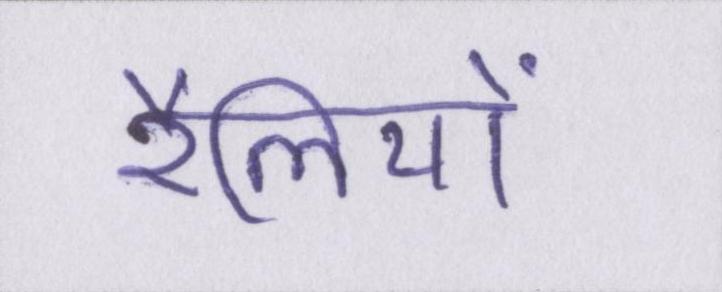 रैलियों